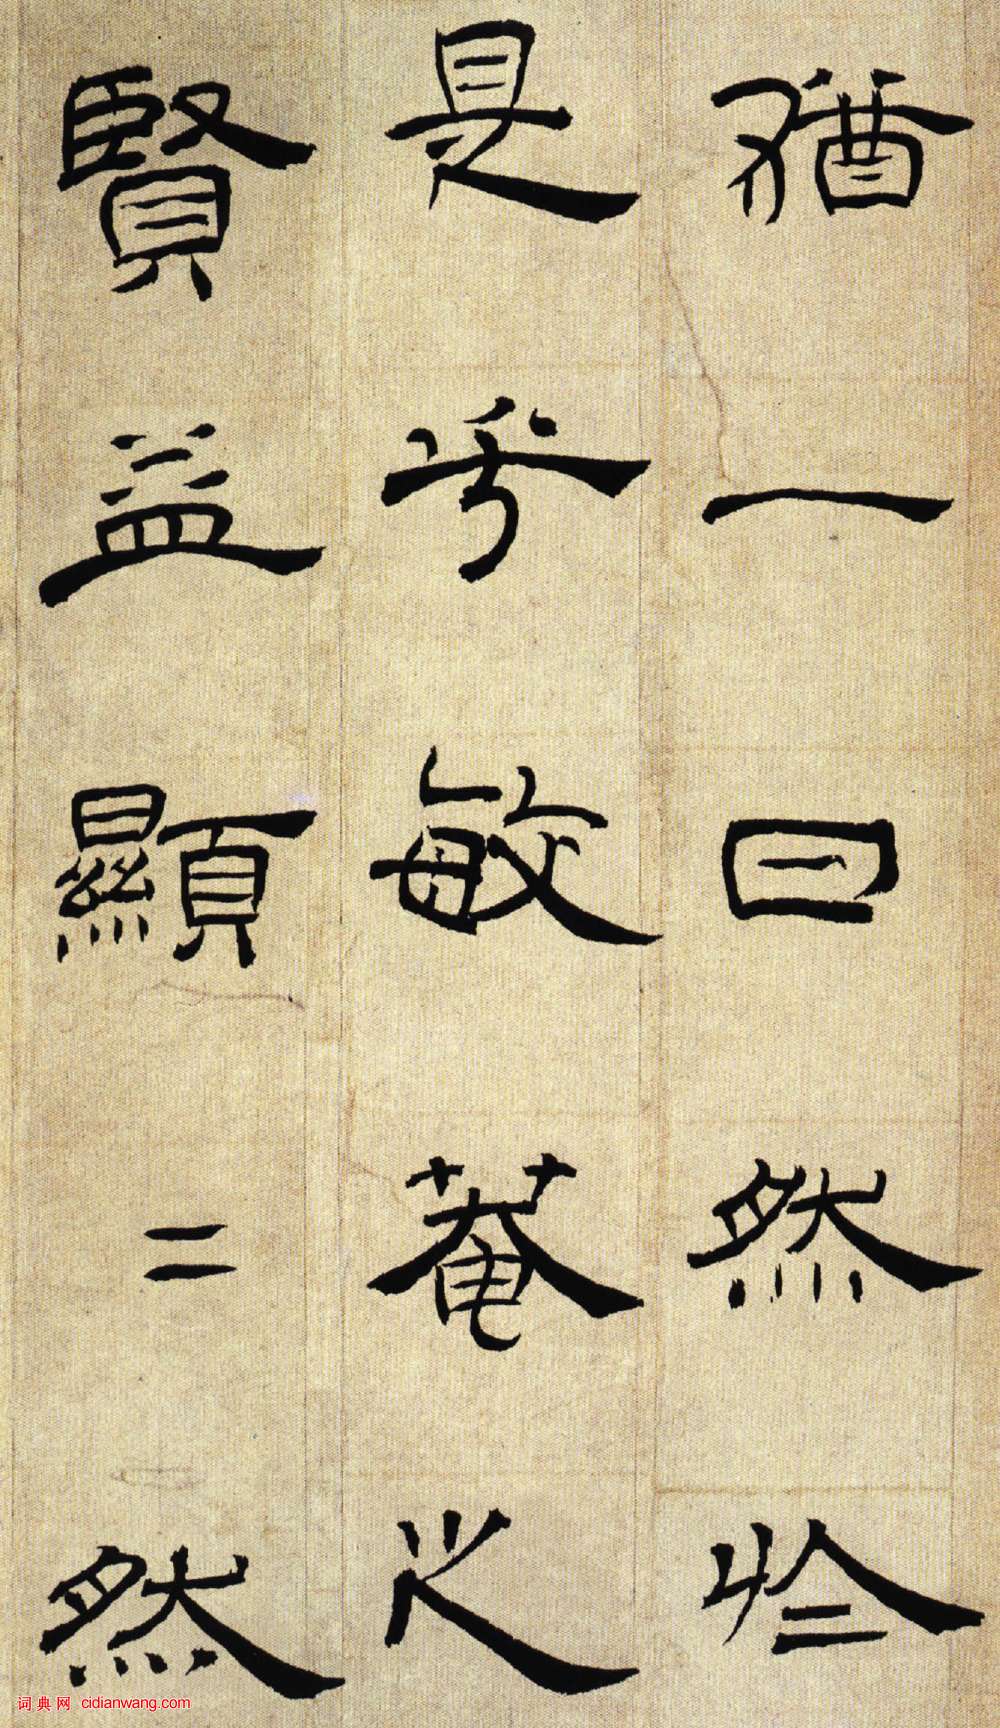 猶一日然於
是乎敏菴之
賢益顯二然
词典网 cidianwang.com